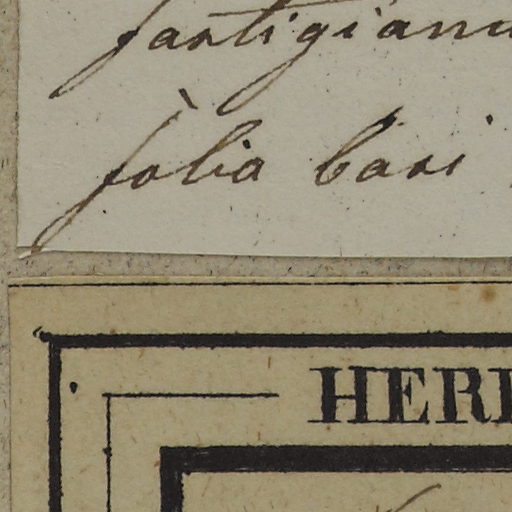 fastigianu
folia basi
HERB